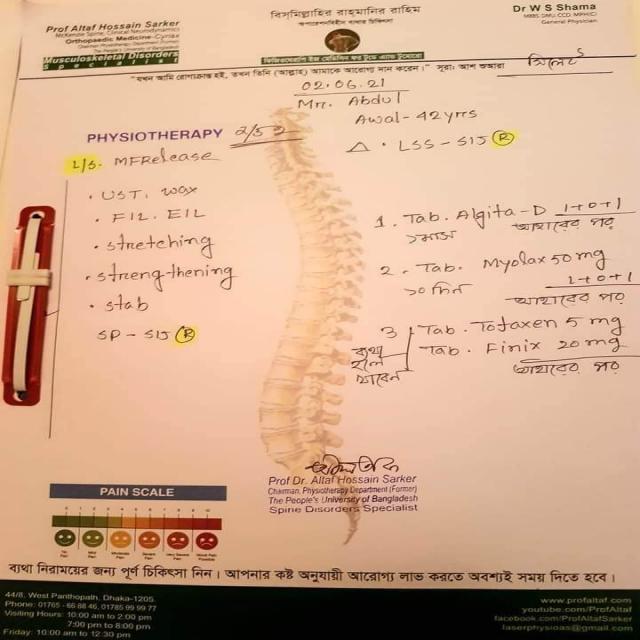 Prof Altaf Hossain Sarker
McKenzie Spine, Clinical Neurodynamics
Orthopaedic Medicine-Cyriax
Chairman Physiotherapy Department (Former)
The People's University of Bangladesh
Musculoskeletal Disorders
Specialist
বিসমিল্লাহির রাহমানির রাহিম
অপারেশনবিহীন ব্যথার চিকিৎসা
Dr W S Shama
MBBS DMU, CCD, MPH(C)
General Physician
"যখন আমি রোগাক্রান্ত হই, তখন তিনি (আল্লাহ) আমাকে আরোগ্য দান করেন।" সূরা: আশ শুআরা
02.06.21
Mr. Abdul
Awal-42yrs
Δ • LSS-SIJ (R)
PHYSIOTHERAPY 2/5 2
L/S. MFRelease
• UST, wax
• FIL. EIL
• stretching
• strengthening
• stab
SP-SIJ (R)
1. Tab. Algita-D 1+0+1
১মাস আহারের পর
2. Tab. Myolax 50 mg
1+0+1
১০ দিন আহারের পর
3 Tab. Tofaxen 5 mg
Tab. Finix 20 mg
ব্যথা হলে খাবেন
আহারের পর
Prof Dr. Altaf Hossain Sarker
Chairman, Physiotherapy Department (Former)
The People's University of Bangladesh
Spine Disorders Specialist
PAIN SCALE
0 1 2 3 4 5 6 7 8 9 10
No Pain
Mild Pain
Moderate Pain
Severe Pain
Very Severe Pain
Worst Pain Possible
ব্যথা নিরাময়ের জন্য পূর্ণ চিকিৎসা নিন। আপনার কষ্ট অনুযায়ী আরোগ্য লাভ করতে অবশ্যই সময় দিতে হবে।
44/8, West Panthopath, Dhaka-1205.
Phone: 01765 - 66 88 46, 01785 99 99 77
Visiting Hours: 10:00 am to 2:00 pm
7:00 pm to 8:00 pm
Friday: 10:00 am to 12:30 pm
www.profaltaf.com
youtube.com/ProfAltaf
facebook.com/ProfAltafSarker
laserphysioas@gmail.com